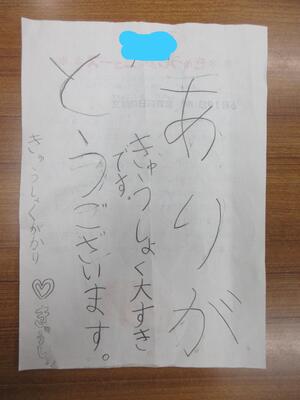 ありが
とうございます。
きゅうしょく大すき
です。
きゅうしょくがかり